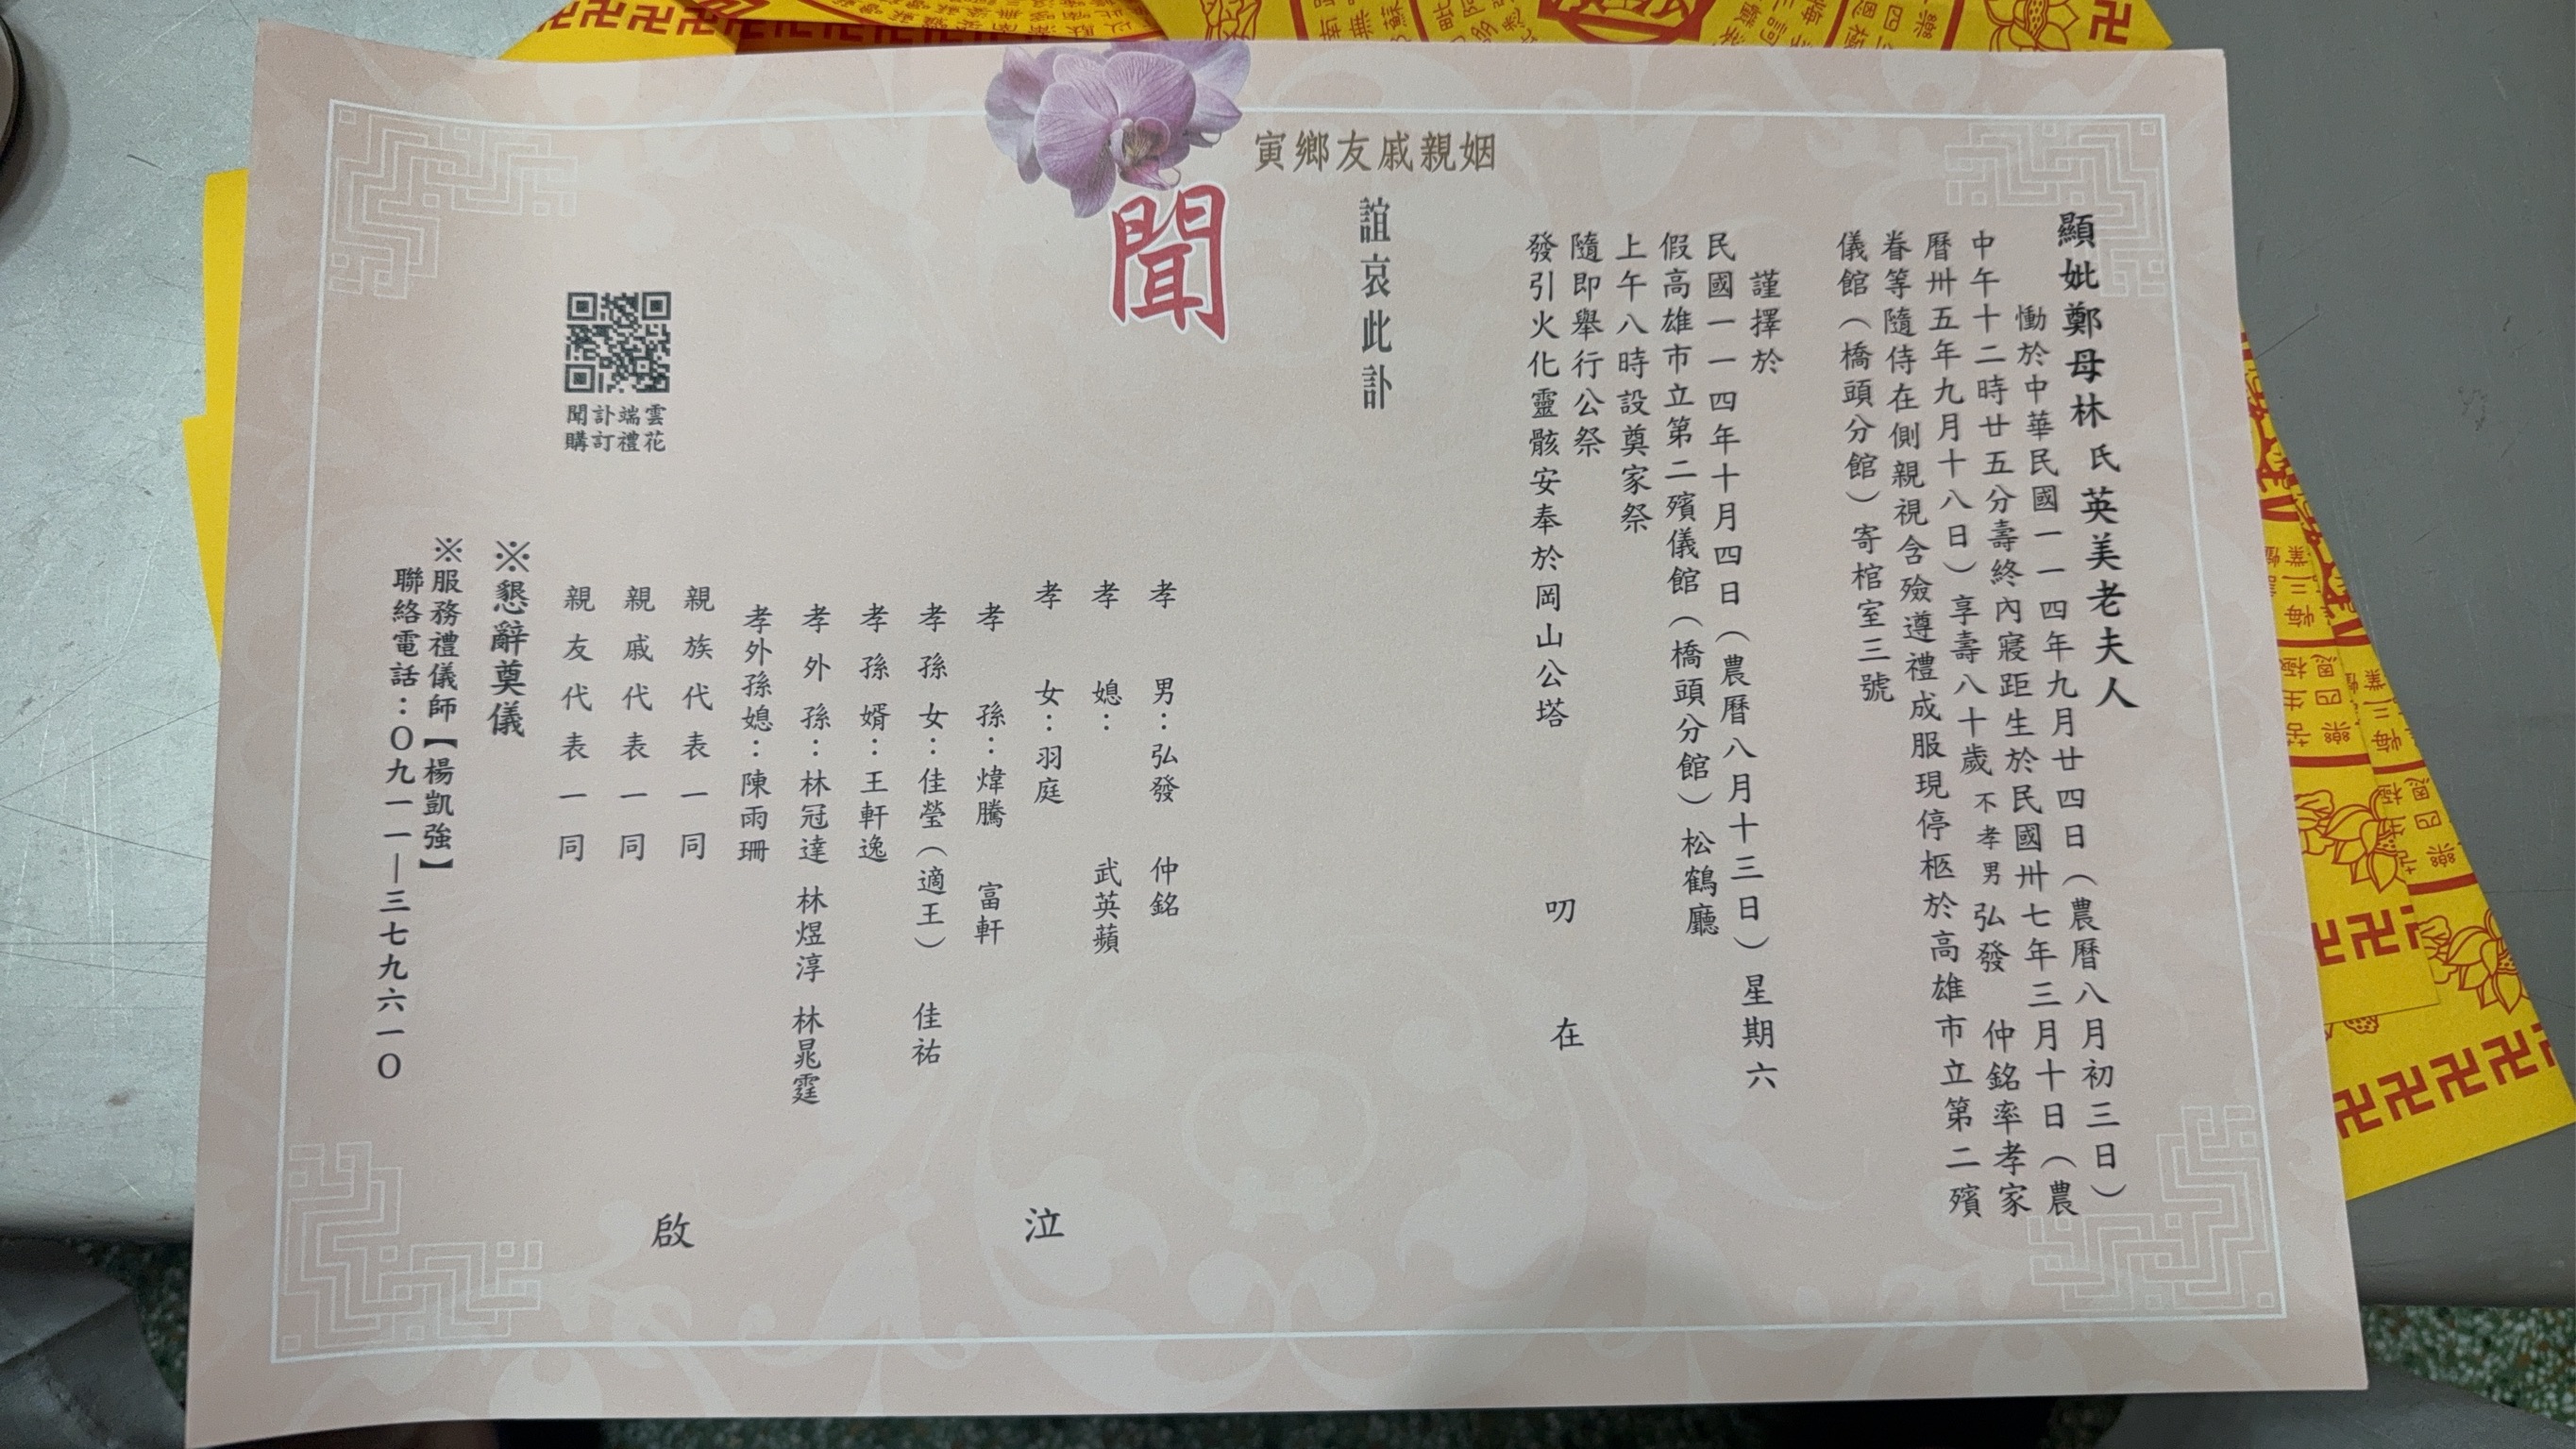 顯妣鄭母林氏英美老夫人
慟於中華民國一一四年九月廿四日（農曆八月初三日）
中午十二時廿五分壽終內寢距生於民國卅七年三月十日（農
曆卅五年九月十八日）享壽八十歲不孝男弘發 仲銘率孝家
眷等隨侍在側親視含殮遵禮成服現停柩於高雄市立第二殯
儀館（橋頭分館）寄棺室三號
謹擇於
民國一一四年十月四日（農曆八月十三日）星期六
假高雄市立第二殯儀館（橋頭分館）松鶴廳
上午八時設奠家祭
隨即舉行公祭
發引火化靈骸安奉於岡山公塔
叨在
寅鄉友戚親姻
誼哀此訃
聞
孝男：弘發 仲銘
孝媳： 武英蘋
孝女：羽庭
孝孫：煒騰 富軒
孝孫女：佳瑩（適王） 佳祐
孝孫婿：王軒逸
孝外孫：林冠達 林煜淳 林晁霆
孝外孫媳：陳雨珊
泣
親族代表一同
親戚代表一同
親友代表一同
啟
※懇辭奠儀
※服務禮儀師【楊凱強】
聯絡電話：０九一一—三七九六一０
聞訃端雲
購訂禮花